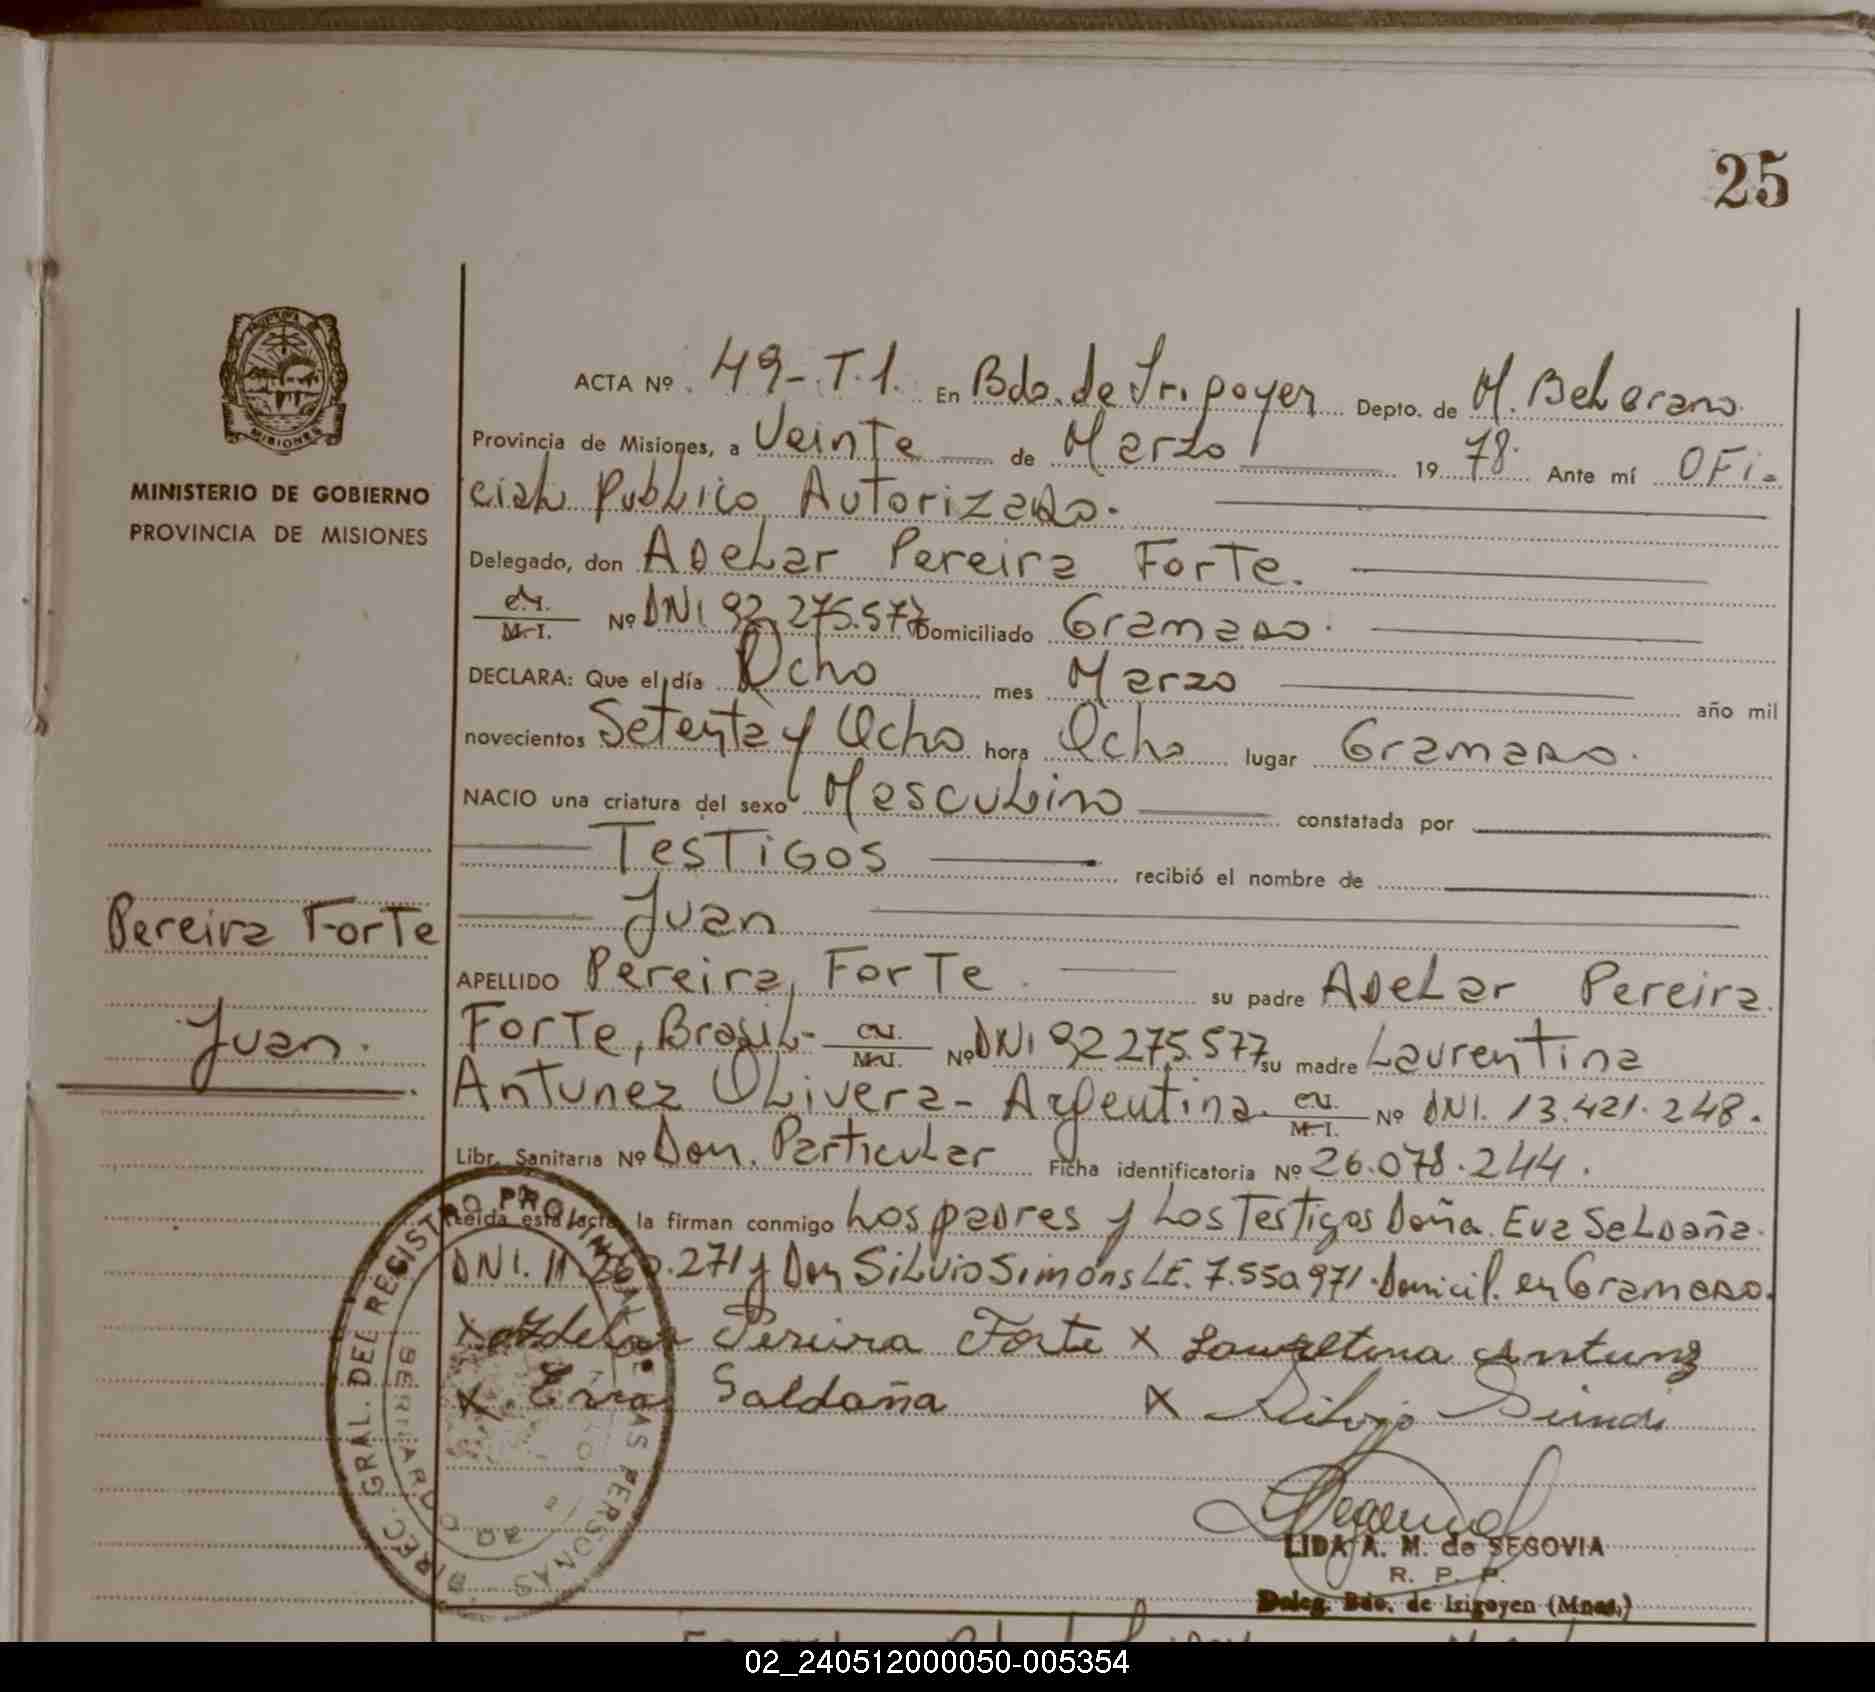 25
ACTA Nº 49-T.1. En Bdo. de Irigoyen Depto. de M. Belgrano.
Provincia de Misiones, a Veinte de Marzo 1978. Ante mí OFi-
MINISTERIO DE GOBIERNO
PROVINCIA DE MISIONES
cial Publico Autorizado.
Delegado, don Adelar Pereira Forte.
C.I. M.I. Nº DNI 92.275.577 Domiciliado Gramado.
DECLARA: Que el día Ocho mes Marzo año mil
novecientos Setenta y Ocho hora Ocho lugar Gramado.
NACIO una criatura del sexo Masculino constatada por
Testigos recibió el nombre de
Juan
Pereira Forte
Juan.
APELLIDO Pereira Forte su padre Adelar Pereira
Forte, Brasil- C.I. M.I. Nº DNI 92 275.577 su madre Laurentina
Antunez Olivera - Argentina. C.I. M.I. Nº DNI. 13.421.248.
Libr. Sanitaria Nº Dom. Particular Ficha identificatoria Nº 26.078.244.
Leída esta acta, la firman conmigo Los padres y Los Testigos Doña Eva Saldaña.
DNI. 11.360.271 y Don Silvio Simons LE. 7.550.971. Domicil. en Gramado.
x Adelar Pereira Forte x Laureltina Antunz
x Eva Saldaña x Silvio
LIDA A. M. de SEGOVIA
R. P. P.
Deleg. Bdo. de Irigoyen (Mnes.)
DIREC. GRAL. DEL REGISTRO PROVINCIAL DE LAS PERSONAS
BERNARDO DE
02_240512000050-005354